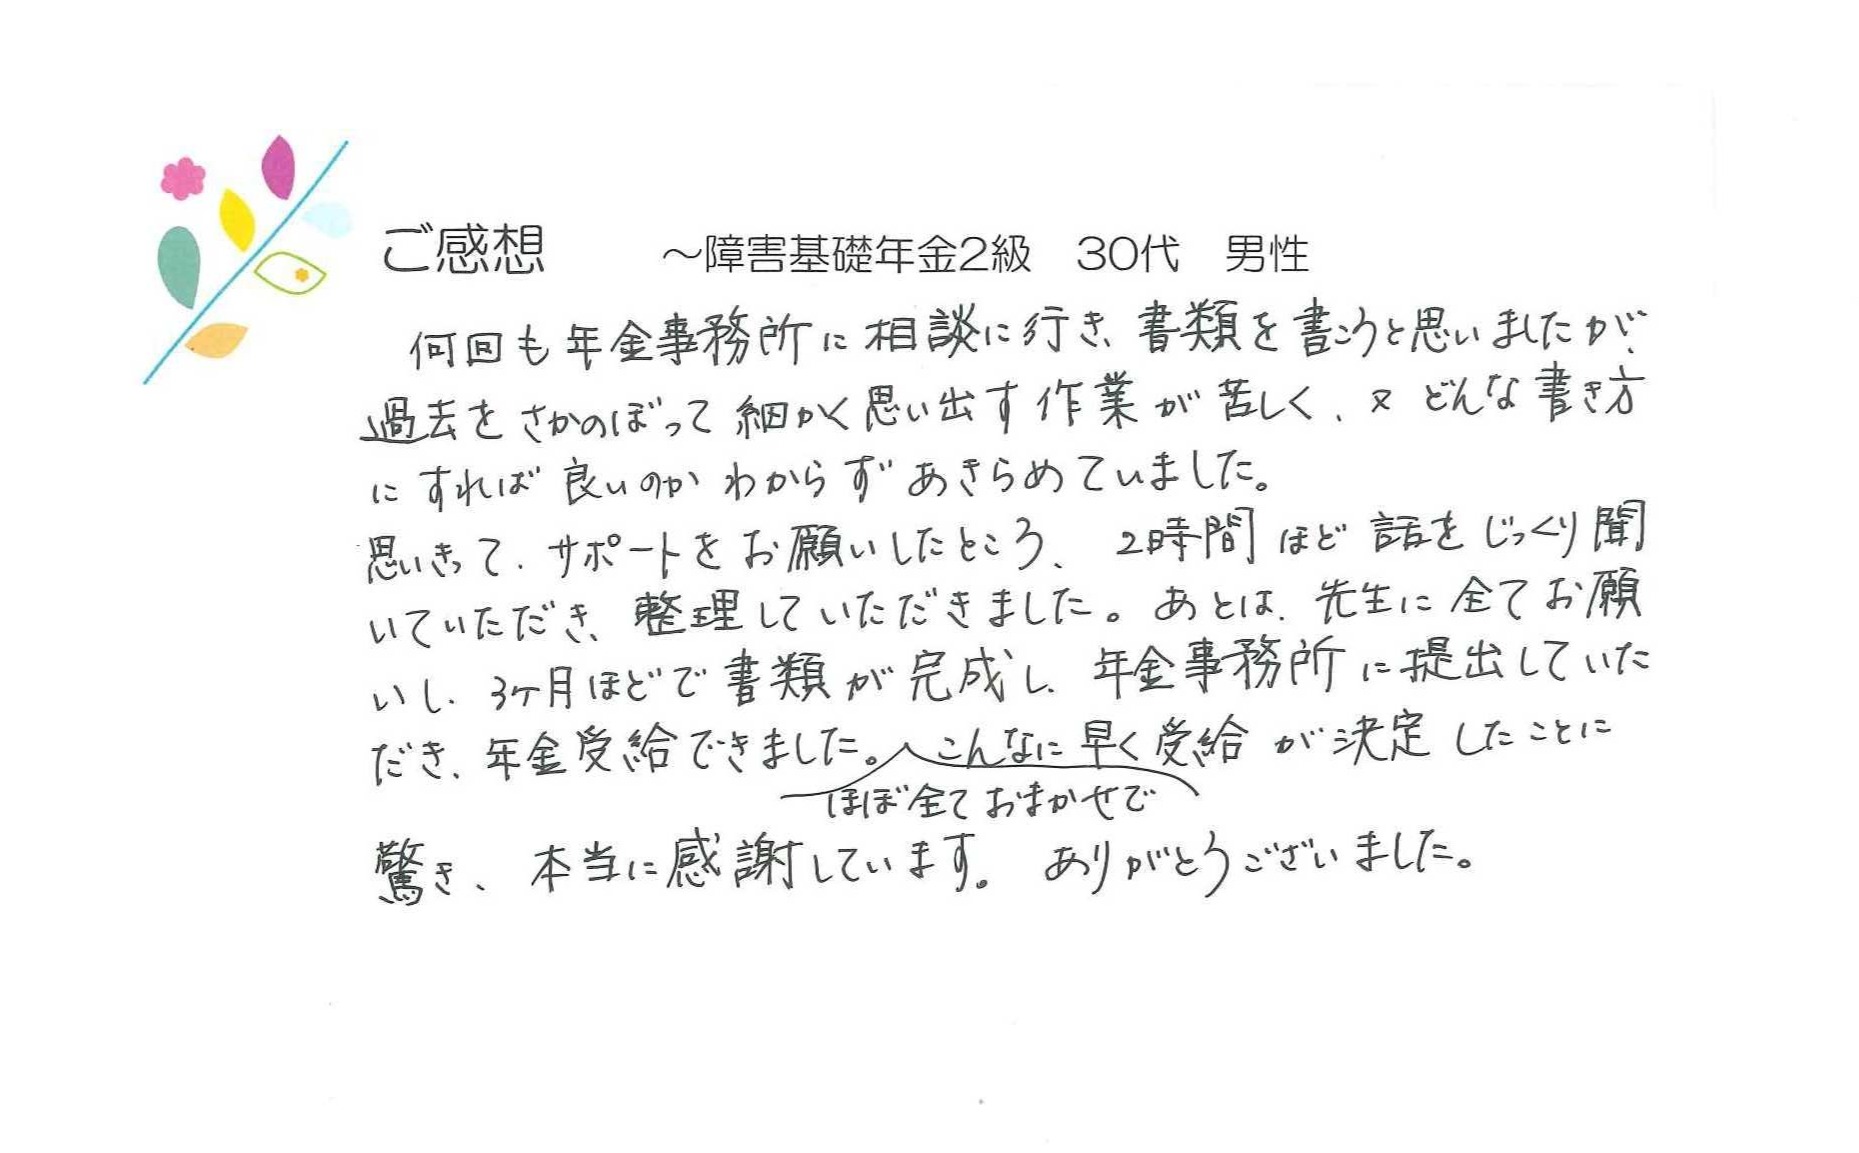 ご感想　～障害基礎年金2級　30代　男性
何回も年金事務所に相談に行き、書類を書こうと思いましたが、
過去をさかのぼって細かく思い出す作業が苦しく、又どんな書き方
にすれば良いのかわからずあきらめていました。
思いきって、サポートをお願いしたところ、2時間ほど話をじっくり聞
いていただき、整理していただきました。あとは、先生に全てお願
いし、3ヶ月ほどで書類が完成し、年金事務所に提出していた
だき、年金受給できました。こんなに早く受給が決定したことに
ほぼ全ておまかせで
驚き、本当に感謝しています。ありがとうございました。